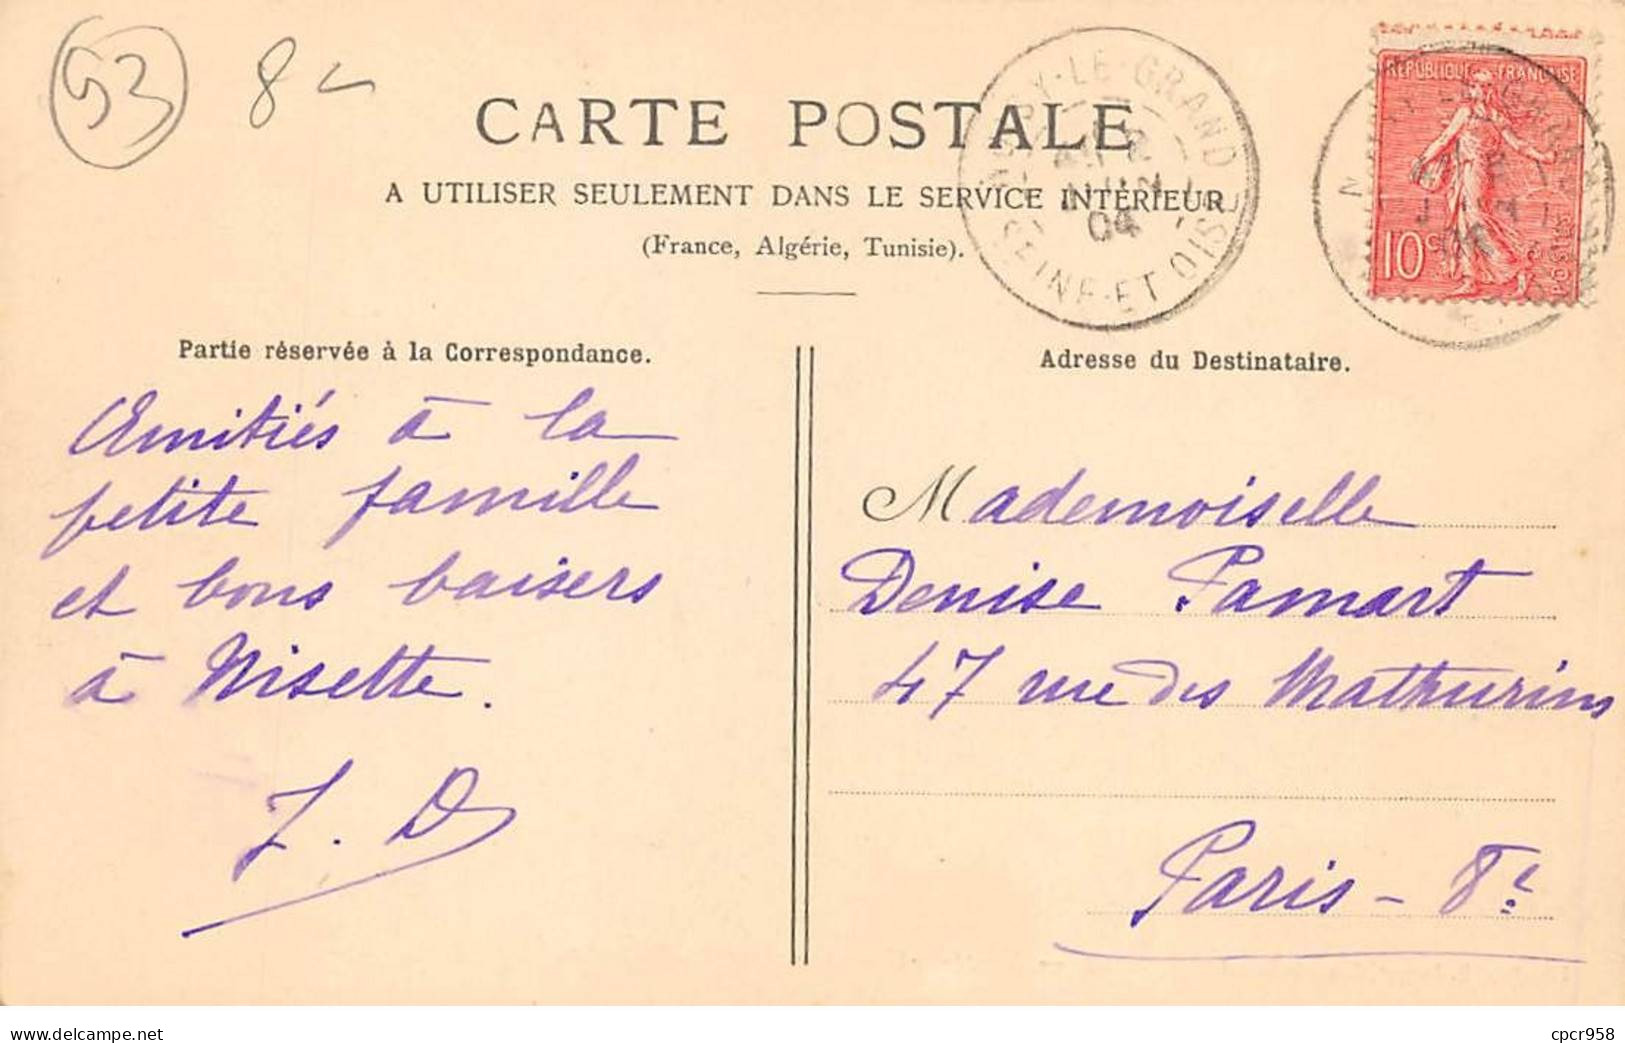 93 8
CARTE POSTALE
A UTILISER SEULEMENT DANS LE SERVICE INTÉRIEUR
(France, Algérie, Tunisie).
LE-GRAND
JUIN
04
SEINE-ET-OISE
RÉPUBLIQUE FRANÇAISE
10 c
POSTES
Partie réservée à la Correspondance.
Amitiés à la
petite famille
et bons baisers
à Nisette.
J. D
Adresse du Destinataire.
Mademoiselle
Denise Pamart
47 rue des Mathurins
Paris - 8e
delcampe.net
cpcr958